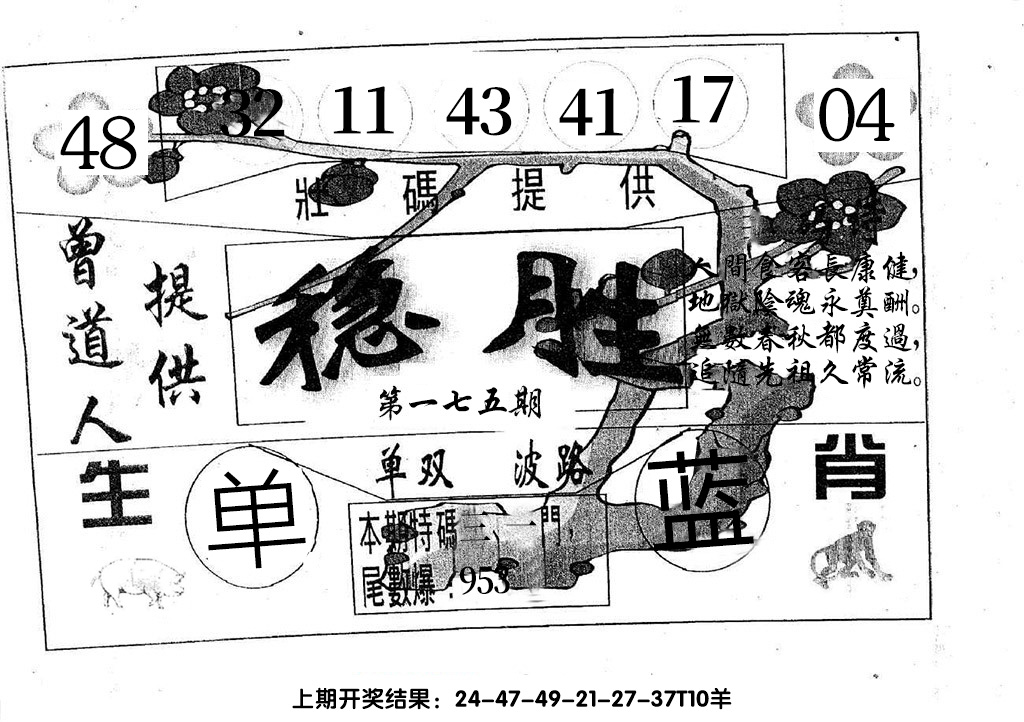 48 32 11 43 41 17 04
壯碼提供
曾道人
提供
稳胜
第一七五期
人間食客長康健，
地獄陰魂永奠酬。
無數春秋都度過，
追隨先祖久常流。
单双 波路
生肖
单
蓝
本期特碼三、一門，
尾數爆：953
上期开奖结果：24-47-49-21-27-37T10羊